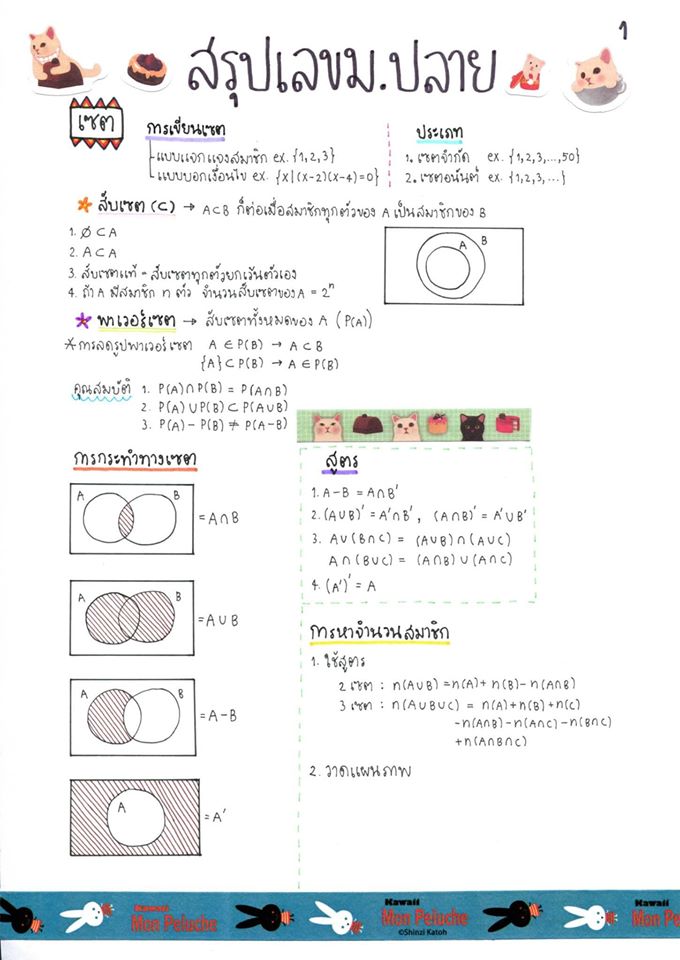 1
สรุปเลขม.ปลาย
เซต
การเขียนเซต
แบบแจกแจงสมาชิก ex. {1,2,3}
แบบบอกเงื่อนไข ex. {x|(x-2)(x-4)=0}
ประเภท
1. เซตจำกัด ex. {1,2,3,...,50}
2. เซตอนันต์ ex. {1,2,3,...}
สับเซต (⊂) → A⊂B ก็ต่อเมื่อสมาชิกทุกตัวของ A เป็นสมาชิกของ B
1. ∅⊂A
2. A⊂A
3. สับเซตแท้ = สับเซตทุกตัวยกเว้นตัวเอง
4. ถ้า A มีสมาชิก n ตัว จำนวนสับเซตของ A = 2ⁿ
A B
พาเวอร์เซต → สับเซตทั้งหมดของ A (P(A))
*การลดรูปพาเวอร์เซต A ∈ P(B) → A⊂B
{A}⊂P(B) → A∈P(B)
คุณสมบัติ 1. P(A)∩P(B) = P(A∩B)
2. P(A)∪P(B)⊂P(A∪B)
3. P(A)-P(B) ≠ P(A-B)
การกระทำทางเซต
A B = A∩B
A B = A∪B
A B = A-B
A = A'
สูตร
1. A-B = A∩B'
2. (A∪B)' = A'∩B', (A∩B)' = A'∪B'
3. A∪(B∩C) = (A∪B)∩(A∪C)
A∩(B∪C) = (A∩B)∪(A∩C)
4. (A')' = A
การหาจำนวนสมาชิก
1. ใช้สูตร
2 เซต : n(A∪B) = n(A)+n(B)-n(A∩B)
3 เซต : n(A∪B∪C) = n(A)+n(B)+n(C)
-n(A∩B)-n(A∩C)-n(B∩C)
+n(A∩B∩C)
2. วาดแผนภาพ
Kawaii
Mon Peluche
Kawaii
Mon Peluche
©Shinzi Katoh
Kawaii
Mon Pe